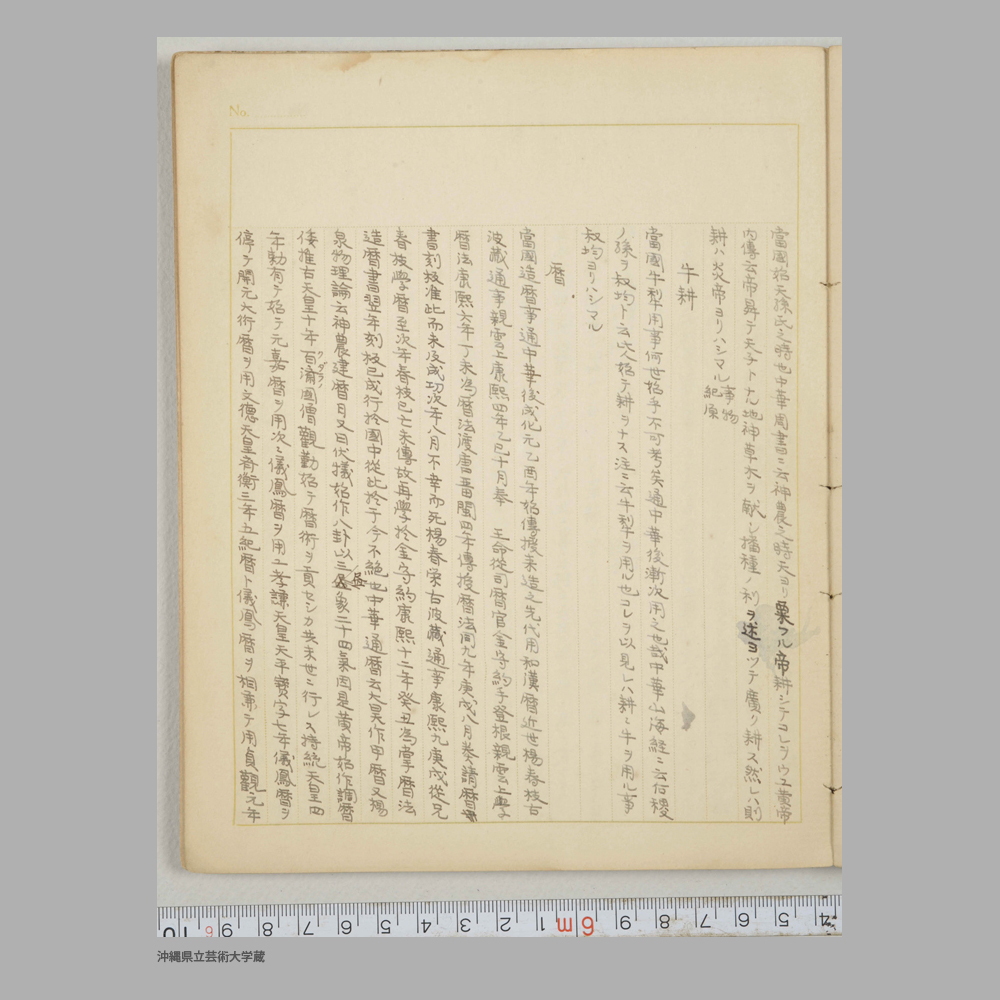 No.
當國始天孫氏之時也中華周書ニ云神農之時天ヨリ粟フル帝耕シテコレヲウユ黄帝
内傳云帝昇テ天子トナ地神草木ヲ献シ播種ノ利ヲ述ヨツテ廣ク耕ス然レハ則
耕ハ炎帝ヨリハシマル事物紀原
牛耕
當國牛犁用事何世始乎不可考矣通中華後漸次用之也哉中華山海経ニ云后稷
ノ孫ヲ叔均ト云此人始テ耕ヲナス注ニ云牛犁ヲ用ル也コレヲ以見レハ耕ニ牛ヲ用ル事
叔均ヨリハシマル
暦
當國造暦事通中華後成化元乙酉年始傳授来造之先代用和漢暦近世楊春枝古
波蔵通事親雲上康熙四年乙巳十月奉 王命従司暦官金守約手登根親雲上學
暦法康熙六年丁未為暦法渡唐晋閩四年傳授暦法同九年庚戌八月奏請暦
書刻板准此而未及成功次年八月不幸而死楊春栄古波蔵通事康熙九庚戌従兄
春枝學暦至次年春枝已亡未傳故再學於金守約康熙十二年癸丑為掌暦法
造暦書翌年刻板已成行於國中従此於于今不絶也中華通暦云大昊作甲暦又楊
泉物理論云神農建暦日又曰伏犠始作八卦以三畫象二十四氣因是黄帝始作調暦
倭推古天皇十年百濟國僧觀勤始テ暦術ヲ貢セシカ共未世ニ行レス持統天皇四
クダラノ
年勅有テ始テ元嘉暦ヲ用次ニ儀鳳暦ヲ用ユ孝謙天皇天平寳字七年儀鳳暦ヲ
停テ開元大衍暦ヲ用文徳天皇斉衡三年五紀暦ト儀鳳暦ヲ相兼テ用貞觀元年
沖縄県立芸術大学蔵